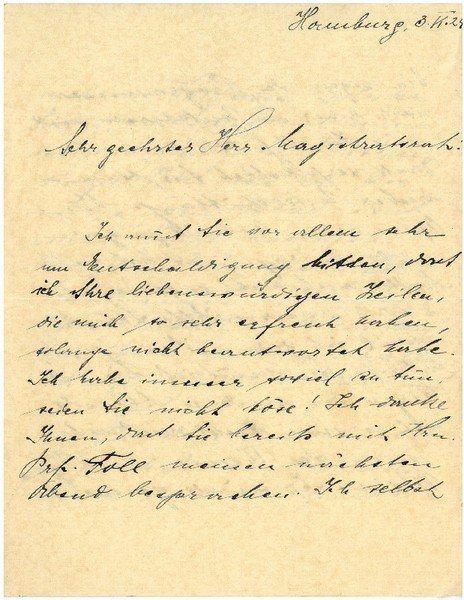 Hamburg, 3. VI. 24
Sehr geehrter Herr Magistratsrat!
Ich muß Sie vor allem sehr
um Entschuldigung bitten, daß
ich Ihre liebenswürdigen Zeilen,
die mich so sehr erfreut haben,
solange nicht beantwortet habe.
Ich habe immer soviel zu tun,
seien Sie nicht böse! Ich danke
Ihnen, daß Sie bereits mit Hrn.
Prf. Foll meinen nächsten
Abend besprachen. Ich selbst